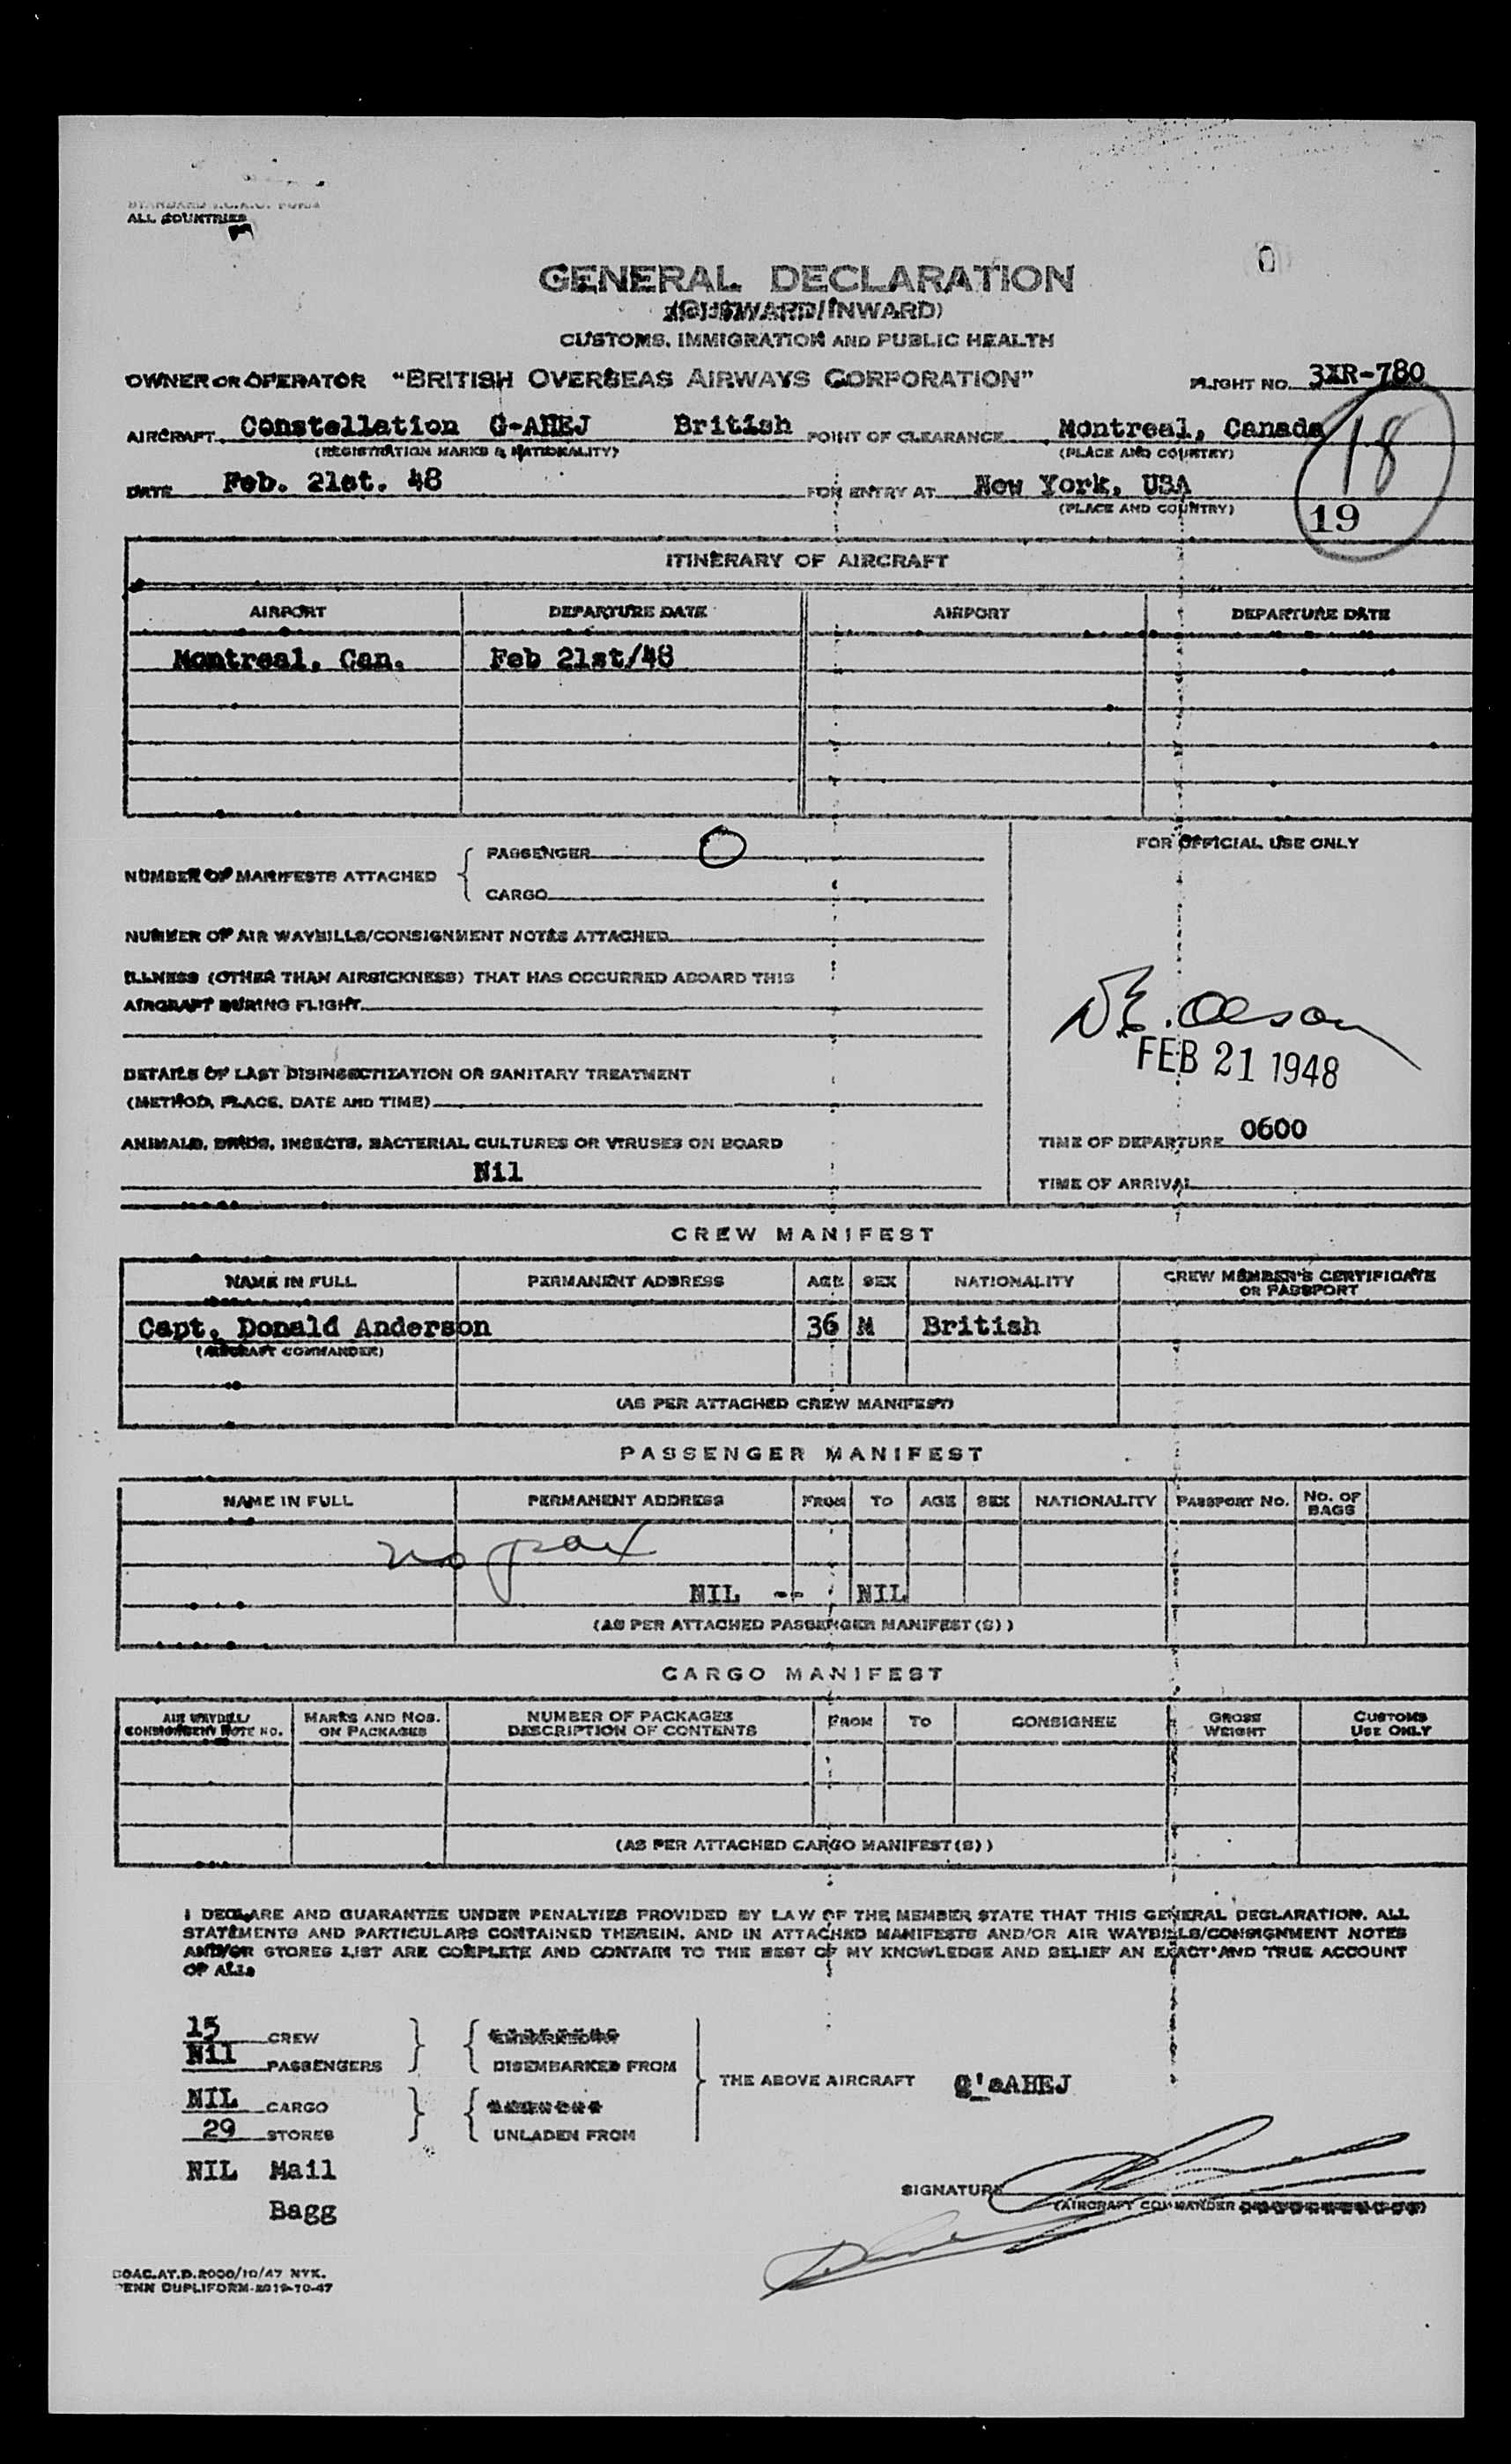 STANDARD I.C.A.O. FORM
ALL COUNTRIES
0
GENERAL DECLARATION
(OUTWARD/INWARD)
CUSTOMS, IMMIGRATION AND PUBLIC HEALTH
OWNER OR OPERATOR "BRITISH OVERSEAS AIRWAYS CORPORATION" FLIGHT NO. 3XR-780
AIRCRAFT Constellation G-AHEJ British POINT OF CLEARANCE Montreal, Canada
(REGISTRATION MARKS & NATIONALITY) (PLACE AND COUNTRY) 18
DATE Feb. 21st. 48 FOR ENTRY AT New York, USA
(PLACE AND COUNTRY) 19
ITINERARY OF AIRCRAFT
AIRPORT DEPARTURE DATE AIRPORT DEPARTURE DATE
Montreal, Can. Feb 21st/48
FOR OFFICIAL USE ONLY
NUMBER OF MANIFESTS ATTACHED PASSENGER 0
CARGO
NUMBER OF AIR WAYBILLS/CONSIGNMENT NOTES ATTACHED
ILLNESS (OTHER THAN AIRSICKNESS) THAT HAS OCCURRED ABOARD THIS
AIRCRAFT DURING FLIGHT
D.E. Olson
FEB 21 1948
DETAILS OF LAST DISINSECTIZATION OR SANITARY TREATMENT
(METHOD, PLACE, DATE AND TIME)
ANIMALS, BIRDS, INSECTS, BACTERIAL CULTURES OR VIRUSES ON BOARD
Nil
TIME OF DEPARTURE 0600
TIME OF ARRIVAL
CREW MANIFEST
NAME IN FULL PERMANENT ADDRESS AGE SEX NATIONALITY CREW MEMBER'S CERTIFICATE
OR PASSPORT
Capt. Donald Anderson 36 M British
(AIRCRAFT COMMANDER)
(AS PER ATTACHED CREW MANIFEST)
PASSENGER MANIFEST
NAME IN FULL PERMANENT ADDRESS FROM TO AGE SEX NATIONALITY PASSPORT NO. NO. OF
BAGS
no pax
NIL -- NIL
(AS PER ATTACHED PASSENGER MANIFEST(S))
CARGO MANIFEST
AIR WAYBILL/
CONSIGNMENT NOTE NO. MARKS AND NOS.
ON PACKAGES NUMBER OF PACKAGES
DESCRIPTION OF CONTENTS FROM TO CONSIGNEE GROSS
WEIGHT CUSTOMS
USE ONLY
(AS PER ATTACHED CARGO MANIFEST(S))
I DECLARE AND GUARANTEE UNDER PENALTIES PROVIDED BY LAW OF THE MEMBER STATE THAT THIS GENERAL DECLARATION, ALL
STATEMENTS AND PARTICULARS CONTAINED THEREIN, AND IN ATTACHED MANIFESTS AND/OR AIR WAYBILLS/CONSIGNMENT NOTES
AND/OR STORES LIST ARE COMPLETE AND CONTAIN TO THE BEST OF MY KNOWLEDGE AND BELIEF AN EXACT AND TRUE ACCOUNT
OF ALL
15 CREW
Nil PASSENGERS DISEMBARKED FROM
THE ABOVE AIRCRAFT g'sAHEJ
NIL CARGO
29 STORES UNLADEN FROM
NIL Mail
Bagg
SIGNATURE
(AIRCRAFT COMMANDER
BOAC.AT.D.2000/10/47 NYK.
PENN DUPLIFORM-2019-10-47